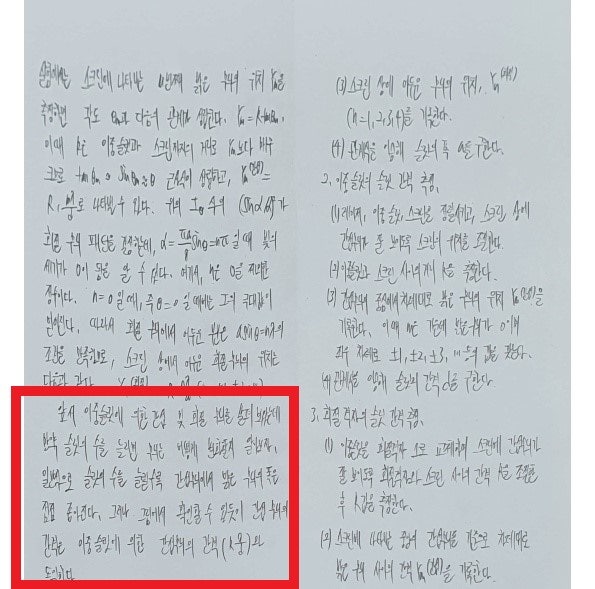 실험에서 스크린에 나타나는 m번째 밝은 무늬의 위치 Ym을
측정하면 각도 θm과 다음의 관계가 성립한다. Ym = R tanθm,
이때 R은 이중슬릿과 스크린까지의 거리로 Ym보다 매우
크므로 tanθm ≈ sinθm ≈ θ 근사식이 성립하고,
로 나타낼 수 있다. 위의 Iθ 식의 가
회절 무늬 패턴을 결정하는데, 일 때 빛의
세기가 0이 됨을 알 수 있다. 여기서, n은 0을 제외한
정수이다. n=0일 때, 즉 θ=0일 때에는 I의 극대값이
된다. 따라서 회절 무늬에서 어두운 부분은 a sinθ=nλ의
조건을 만족하므로, 스크린 상에서 어두운 회절무늬의 위치는
다음과 같다.
앞서 이중슬릿에 의한 간섭 및 회절 무늬를 살펴 보았는데
만약 슬릿의 수를 늘리면 무늬는 어떻게 변화될지 알아보자.
일반적으로 슬릿의 수를 늘릴수록 간섭무늬에서 밝은 무늬의 폭은
점점 좁아진다. 그러나 그림에서 확인할 수 있듯이 간섭 무늬의
간격은 이중슬릿에 의한 간섭무늬의 간격( )과
동일하다.
(3) 스크린 상에 어두운 무늬의 위치,
(n=1,2,3,4)를 기록한다.
(4) 관계식을 이용해 슬릿의 폭 a를 구한다.
2. 이중슬릿의 슬릿 간격 측정.
(1) 레이저, 이중슬릿, 스크린을 정렬시키고, 스크린 상에
간섭무늬가 잘 보이도록 스크린의 위치를 조절한다.
(2) 이중슬릿과 스크린 사이 거리 R을 측정한다.
(3) 간섭무늬 중심에서 차례대로 밝은 무늬의 위치 을
기록한다. 이때 m은 가운데 밝은 무늬가 0이며
좌우 차례로 ±1, ±2, ±3, …등의 값을 갖는다.
(4) 관계식을 이용해 슬릿의 간격 d를 구한다.
3. 회절 격자의 슬릿 간격 측정.
(1) 이중슬릿을 회절격자 으로 교체하여 스크린에 간섭무늬가
잘 보이도록 회절격자와 스크린 사이의 간격 R을 조절한
후 R값을 측정한다.
(2) 스크린에 나타난 중앙의 간섭무늬를 기준으로 차례대로
밝은 무늬 사이의 간격 을 기록한다.